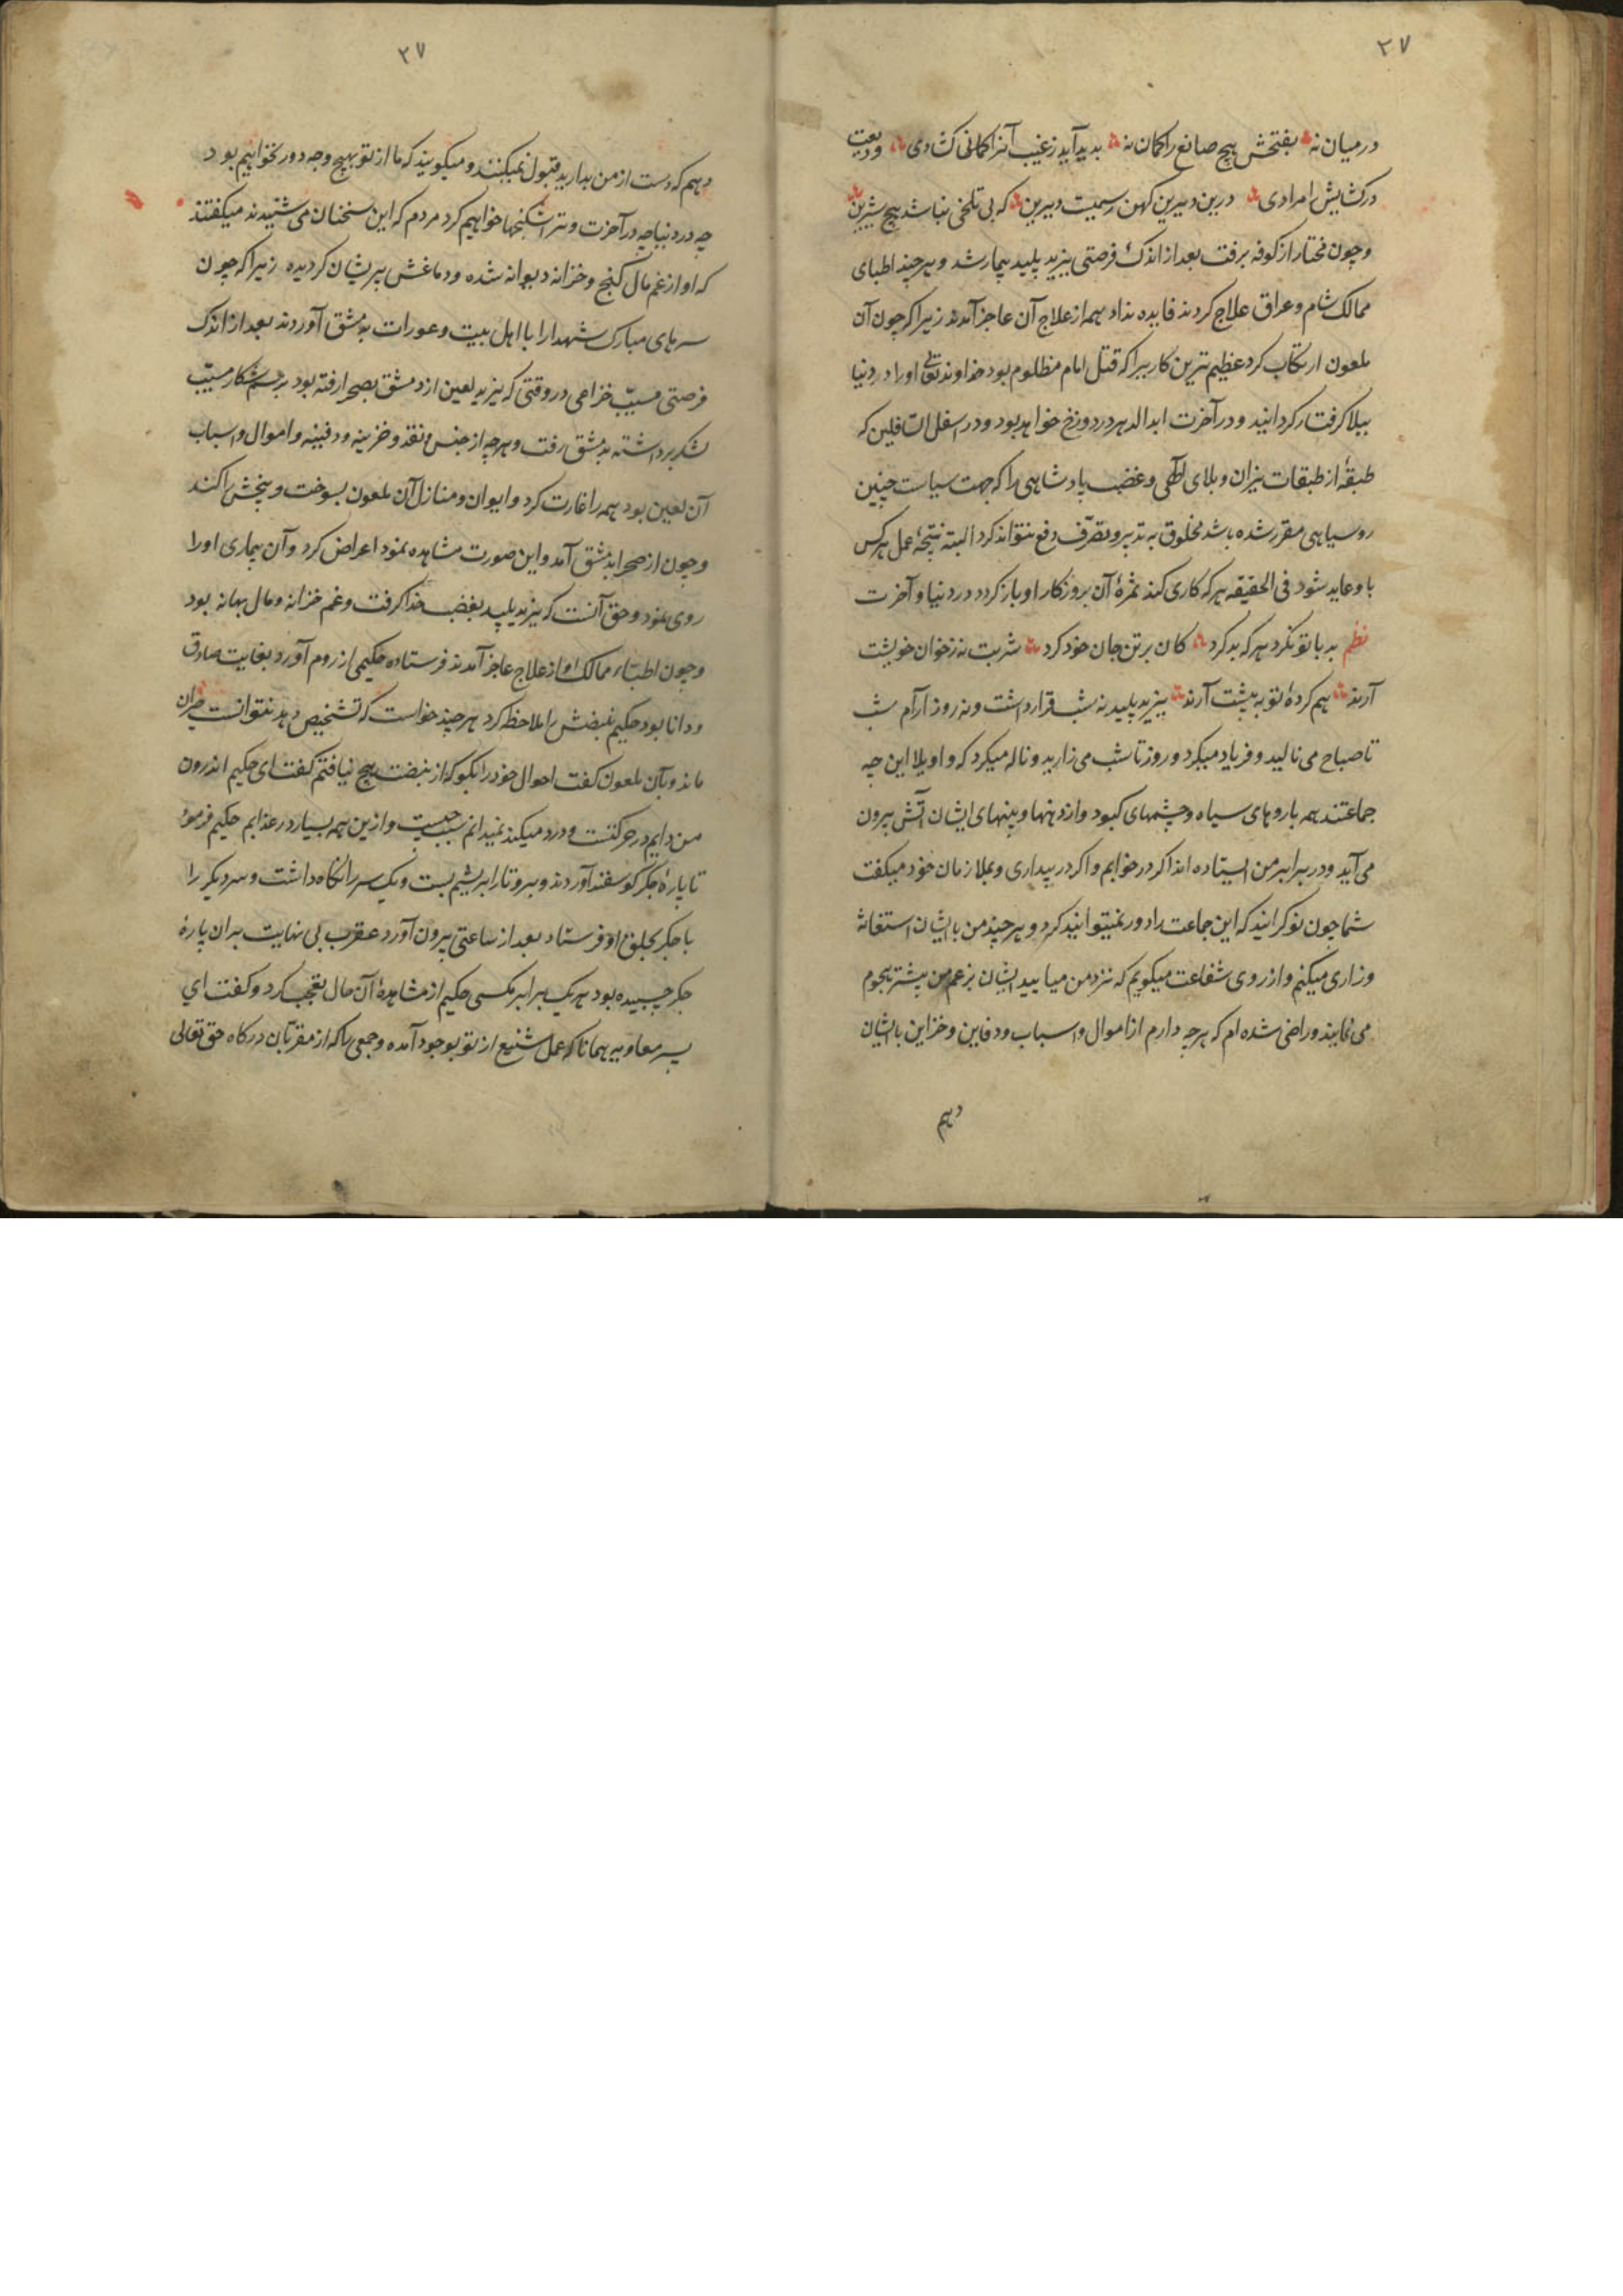 ۲۷
در میان نه بفتحش هیچ صانع را کمان نه بدید آید ز غیب آنرا کمانی کشادی ودیعت
در کشایش امرادی درین دیرین کهن رسمیت دیرین که بی تلخی نباشد هیچ شیرین
و چون مختار از کوفه برفت بعد از اندک فرصتی یزید پلید بیمار شد و هر چند اطبای
ممالک شام و عراق علاج کردند فایده نداد همه از علاج آن عاجز آمدند زیرا که چون آن
ملعون ارتکاب کرد عظیم ترین کاریرا که قتل امام مظلوم بود خداوند تعالی او را در دنیا
ببلا کرفتار کردانید و در آخرت ابد الدهر در دوزخ خواهد بود و در اسفل السافلین که
طبقهٔ از طبقات نیران و بلای الهی و غضب پادشاهی را که جهت سیاست چنین
روسیاهی مقرر شده باشد مخلوق به تدبیر و تصرّف دفع نتواند کرد البته نتیجهٔ عمل هر کس
باو عاید شود فی الحقیقه هر که کاری کند ثمرهٔ آن بروزکار او باز کردد در دنیا و آخرت
نظم بد با تو نکرد هر که بد کرد کان بر تن جان خود کرد شربت نه ز خوان خویشت
آرند هم کردهٔ تو به پیشت آرند یزید پلید نه شب قرار داشت و نه روز آرام شب
تا صباح می نالید و فریاد میکرد و روز تا شب می زارید و ناله میکرد که واویلا این چه
جماعتند همه با روهای سیاه و چشمهای کبود و از دهنها و بینهای ایشان آتش بیرون
می آید و در برابر من ایستاده اند اکر در خوابم و اکر در بیداری و بملازمان خود میکفت
شما چون نوکرانید که این جماعت را دور نمیتوانید کرد و هر چند من بایشان استغاثه
وزاری میکنم و از روی شفاعت میکویم که نزد من میایید ایشان بزعم من بیشتر هجوم
می نمایند و راضی شده ام که هر چه دارم از اموال و اسباب و دفاین و خزاین بایشان
دهم
۲۷
دهم که دست از من بدارید قبول نمیکنند و میکویند که ما از تو بهیچ وجه دور نخواهیم بود
چه در دنیا چه در آخرت و ترا شکنجها خواهیم کرد مردم که این سخنان می شنیدند میکفتند
که او از غم مال کنج و خزانه دیوانه شده و دماغش پریشان کردیده زیرا که چون
سرهای مبارک شهدا را با اهل بیت و عورات بدمشق آوردند بعد از اندک
فرصتی مسیّب خزاعی در وقتی که یزید لعین از دمشق بصحرا رفته بود برسم شکار مسیّب
لشکر برداشته بدمشق رفت و هر چه از جنس و نقد و خزینه و دفینه و اموال و اسباب
آن لعین بود همه را غارت کرد و ایوان و منازل آن ملعون بسوخت و بیخش را کند
و چون از صحرا بدمشق آمد و این صورت مشاهده نمود اعراض کرد و آن بیماری او را
روی نمود و حق آنست که یزید پلید بغضب خدا کرفت و غم خزانه و مال بهانه بود
و چون اطبّاء ممالک او از علاج عاجز آمدند فرستاده حکیمی از روم آورد بغایت صادق
و دانا بود حکیم نبضش را ملاحظه کرد هر چند خواست که تشخیص دهد نتوانست حیران
ماند و بآن ملعون کفت احوال خود را بکو که از نبضت هیچ نیافتم کفت ای حکیم اندرون
من دایم در حرکتست و درد میکند نمیدانم سبب چیست و ازین همه بسیار در عذابم حکیم فرمود
تا پارهٔ جکر کوسفند آوردند و برو تار ابریشم بست و یک سر را نکاه داشت و سر دیکر را
با جکر بحلق او فرستاد بعد از ساعتی بیرون آورد عقرب بی نهایت بران پارهٔ
جکر چسبیده بود هر یک برابر مکسی حکیم از مشاهدهٔ آن حال تعجب کرد و کفت ای
پسر معاویه همانا که عمل شنیع از تو بوجود آمده و جمعی را که از مقرّبان درکاه حق تعالی